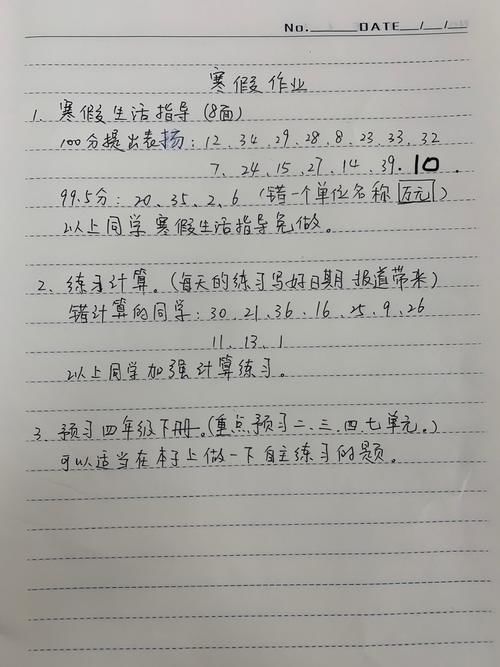 No. DATE / /
寒假作业
1、寒假生活指导(8面)
100分提出表扬:12、34、29、28、8、23、33、32
7、24、15、27、14、39、10
99.5分:20、35、2、6 (错一个单位名称 万元)
以上同学寒假生活指导免做。
2、练习计算。(每天的练习写好日期报道带来)
错计算的同学:30、21、36、16、25、9、26
11、13、1
以上同学加强计算练习。
3、预习四年级下册。(重点预习二、三、四、七单元。)
可以适当在本子上做一下自主练习的题。